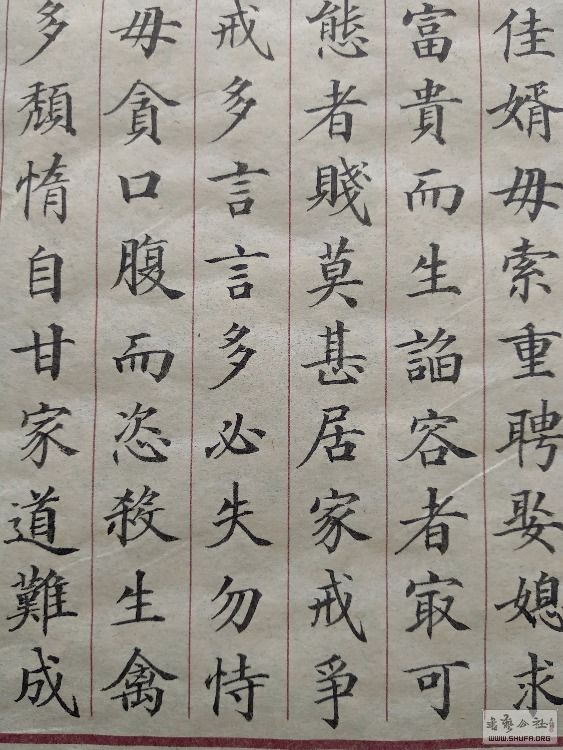 佳婿毋索重聘娶媳求
富貴而生諂容者㝡可
態者賤莫甚居家戒爭
戒多言言多必失勿恃
毋貪口腹而恣殺生禽
多頹惰自甘家道難成
WWW.SHUFA.ORG